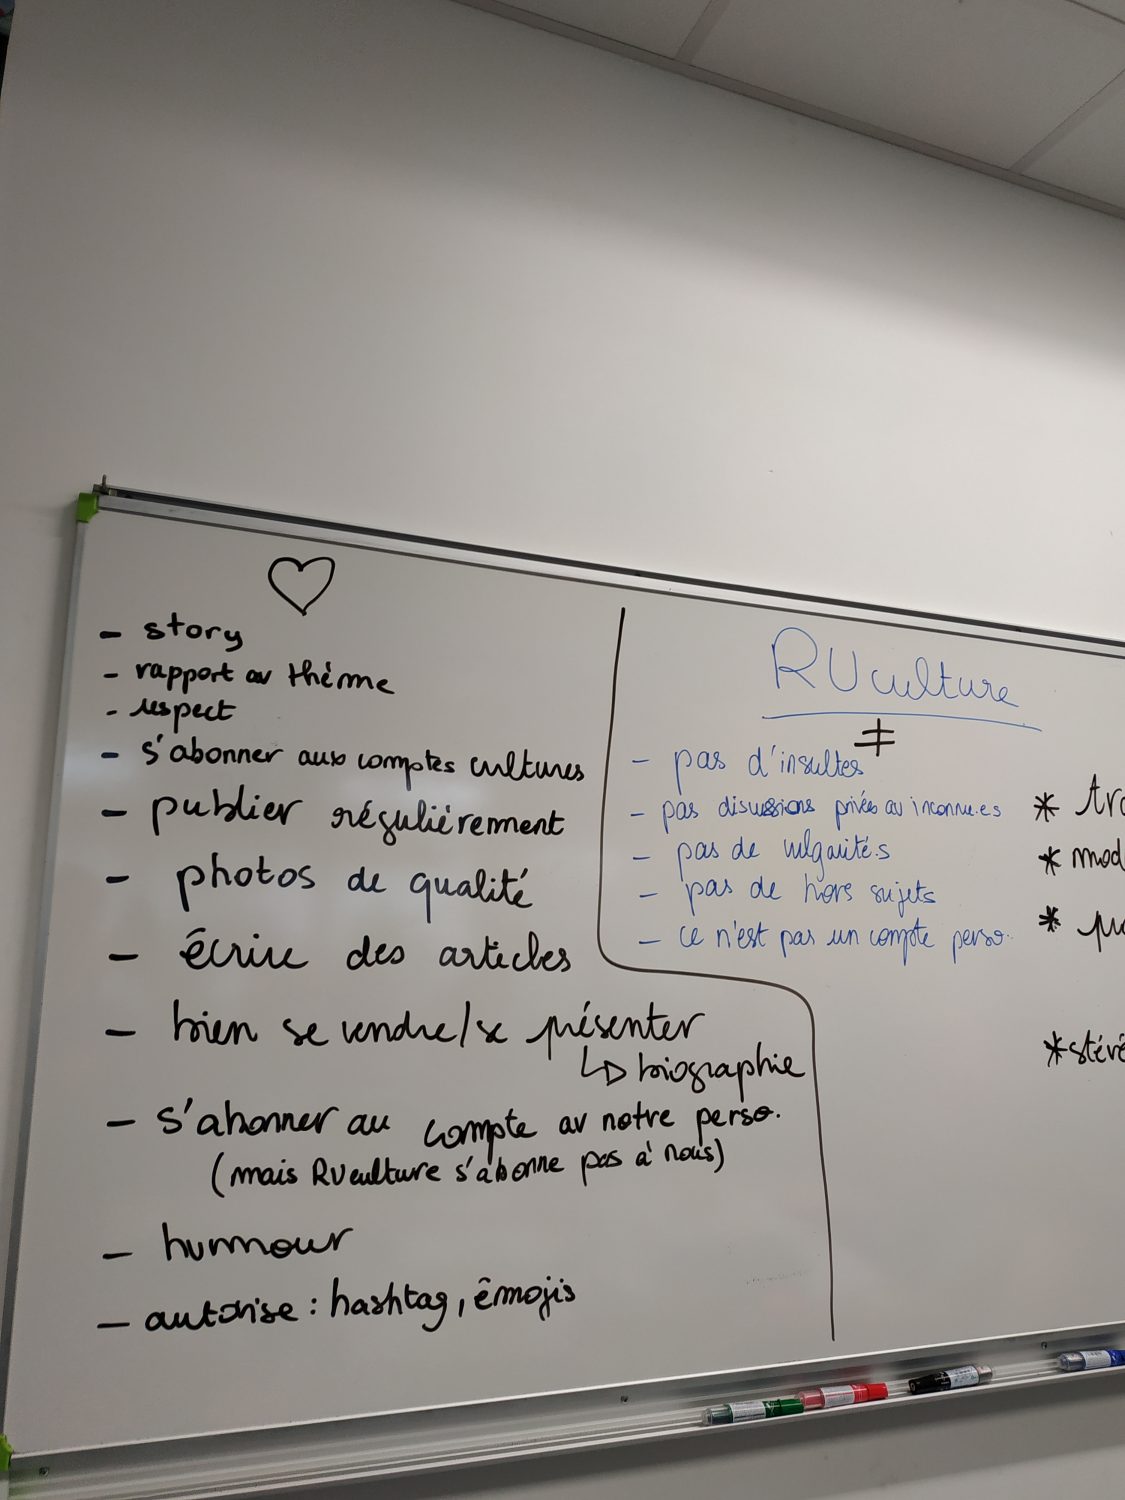 - story
- rapport au thème
- respect
- s'abonner aux comptes cultures
- publier régulièrement
- photos de qualité
- écrire des articles
- bien se vendre/se présenter
↳ biographie
- s'abonner au compte av notre perso.
(mais RUculture s'abonne pas à nous)
- humour
- autorise : hashtag, émojis
RUculture
≠
- pas d'insultes
- pas discussions privées au inconnu.es
- pas de vulgarité.s
- pas de hors sujets
- ce n'est pas un compte perso.
* tra
* mod
*
* stéré